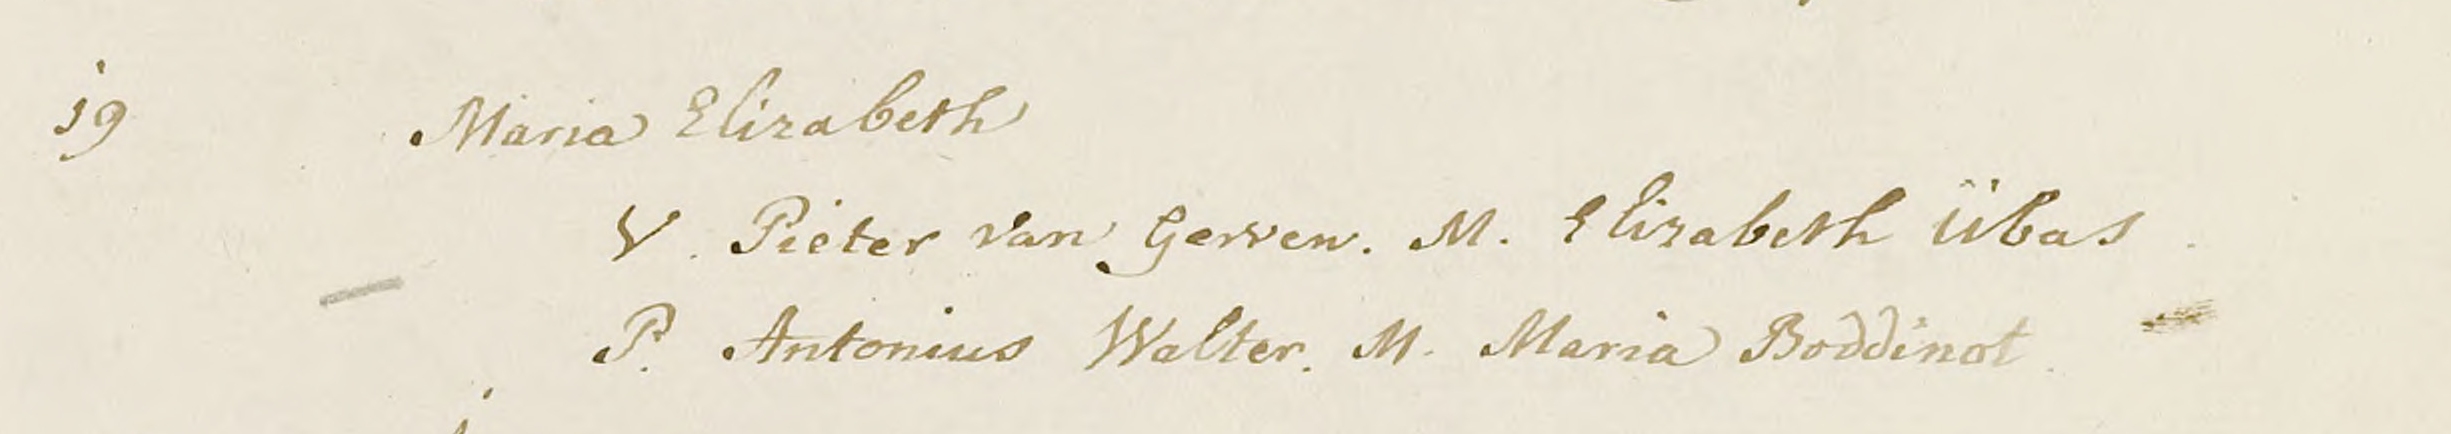 19 Maria Elizabeth
V. Pieter van Gerven. M. Elizabeth Übas.
P. Antonius Walter. M. Maria Boddinot.